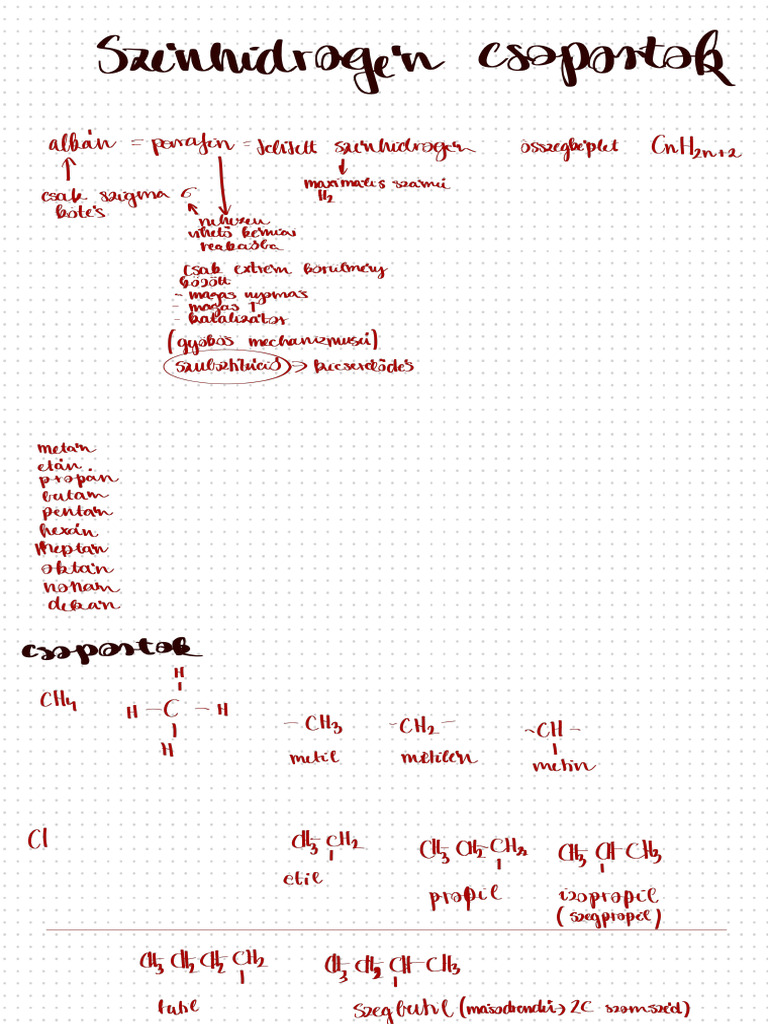 Szénhidrogén csoportok
alkán = parafin = telített szénhidrogén összegképlet CnH2n+2
csak szigma σ kötés
maximális számú H2
nehezen vihető kémiai reakcióba
csak extrém körülmény között
- magas nyomás
- magas T
- katalizátor
(gyökös mechanizmusú)
szubsztitúció → kicserélődés
metán
etán
propán
bután
pentán
hexán
heptán
oktán
nonán
dekán
csoportok
CH4
H
H - C - H
H
- CH3 - CH2 - - CH -
metil metilén metin
Cl
CH3 CH2 CH3 CH2 - CH2 CH3 CH - CH3
etil propil izopropil
(szegpropil)
CH3 CH2 CH2 CH2 CH3 CH2 CH - CH3
butil szegbutil (másodrendű → 2C szomszéd)